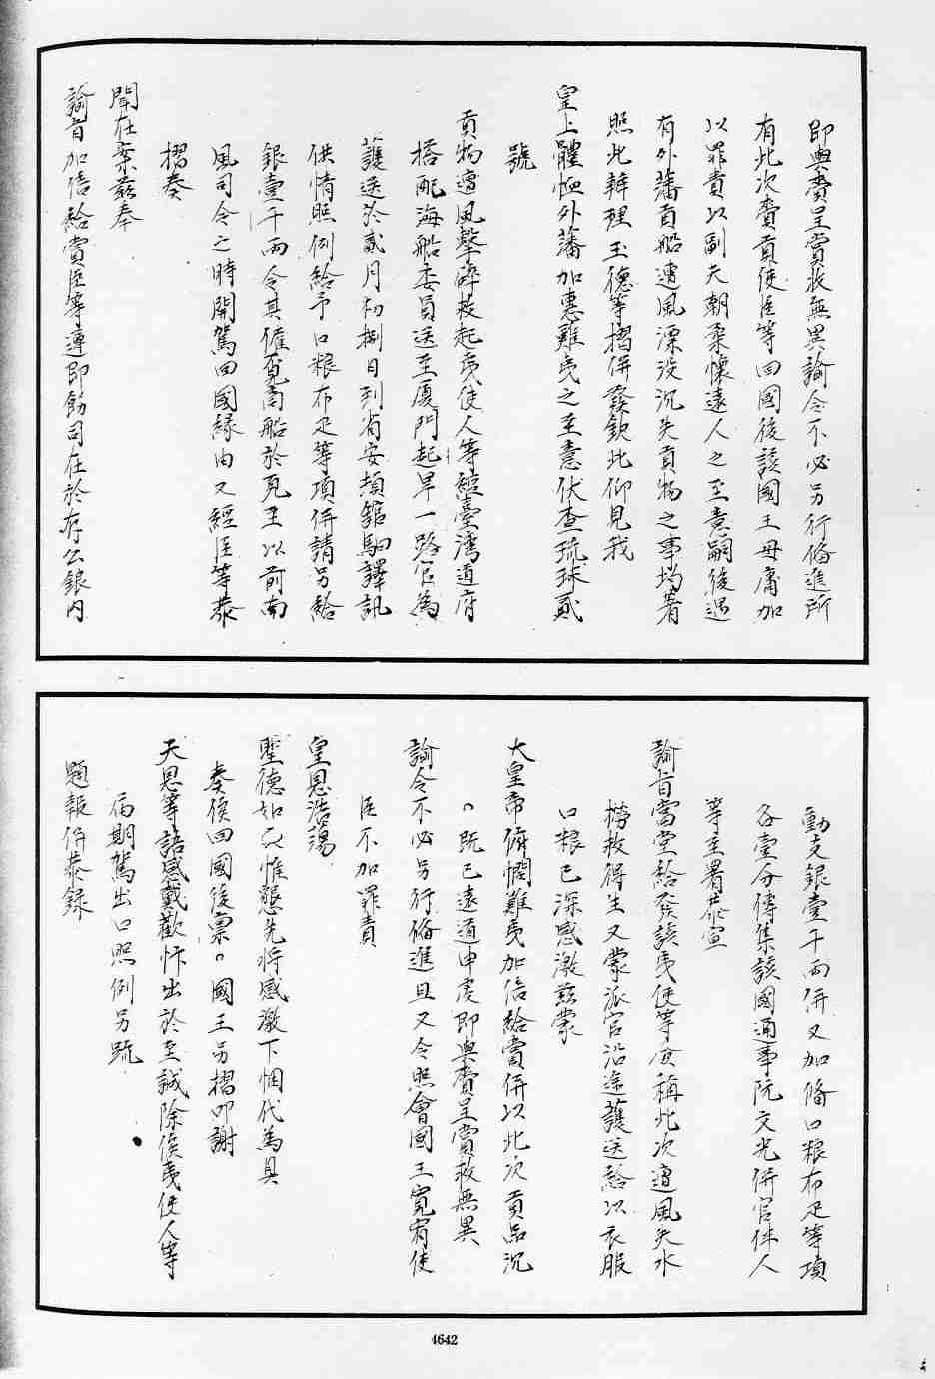 即與賫呈賞收無異諭令不必另行俻進所
有此次賫貢使臣等回國後該國王毋庸加
以罪責以副天朝柔懷遠人之至意嗣後遇
有外藩貢船遭風漂没沉失貢物之事均著
照此辦理玉德等摺併發欽此仰見我
皇上軆恤外藩加惠難夷之至意伏查琉球貳
號
貢物遭風擊碎救起夷使人等經臺湾道府
搭配海船委員送至厦門起旱一路官為
護送於貳月初捌日到省安頓舘馹譯訊
供情照例給予口粮布疋等項併請另給
銀壹千両令其僱覓商船於兎王以前南
風司令之時開駕回國緣由又經臣等恭
摺奏
聞在案兹奉
諭旨加倍給賞臣等遵即飭司在於存公銀内
動支銀壹千両併又加俻口粮布疋等項
各壹分傳集該國通事阮文光併官伴人
等至署恭宣
諭旨當堂給發該夷使等僉稱此次遭風失水
撈救得生又蒙派官沿途護送給以衣服
口粮已深感激兹蒙
大皇帝俯憫難夷加倍給賞併以此次貢品沉
〇既已遠道申虔即與賫呈賞收無異
諭令不必另行俻進且又令照會國王寬宥使
臣不加罪責
皇恩浩蕩
聖德如天惟懇先將感激下悃代為具
奏俟回國後禀〇國王另摺叩謝
天恩等語感戴歡忭出於至誠除俟夷使人等
届期駕出口照例另疏
題報併恭録
4642